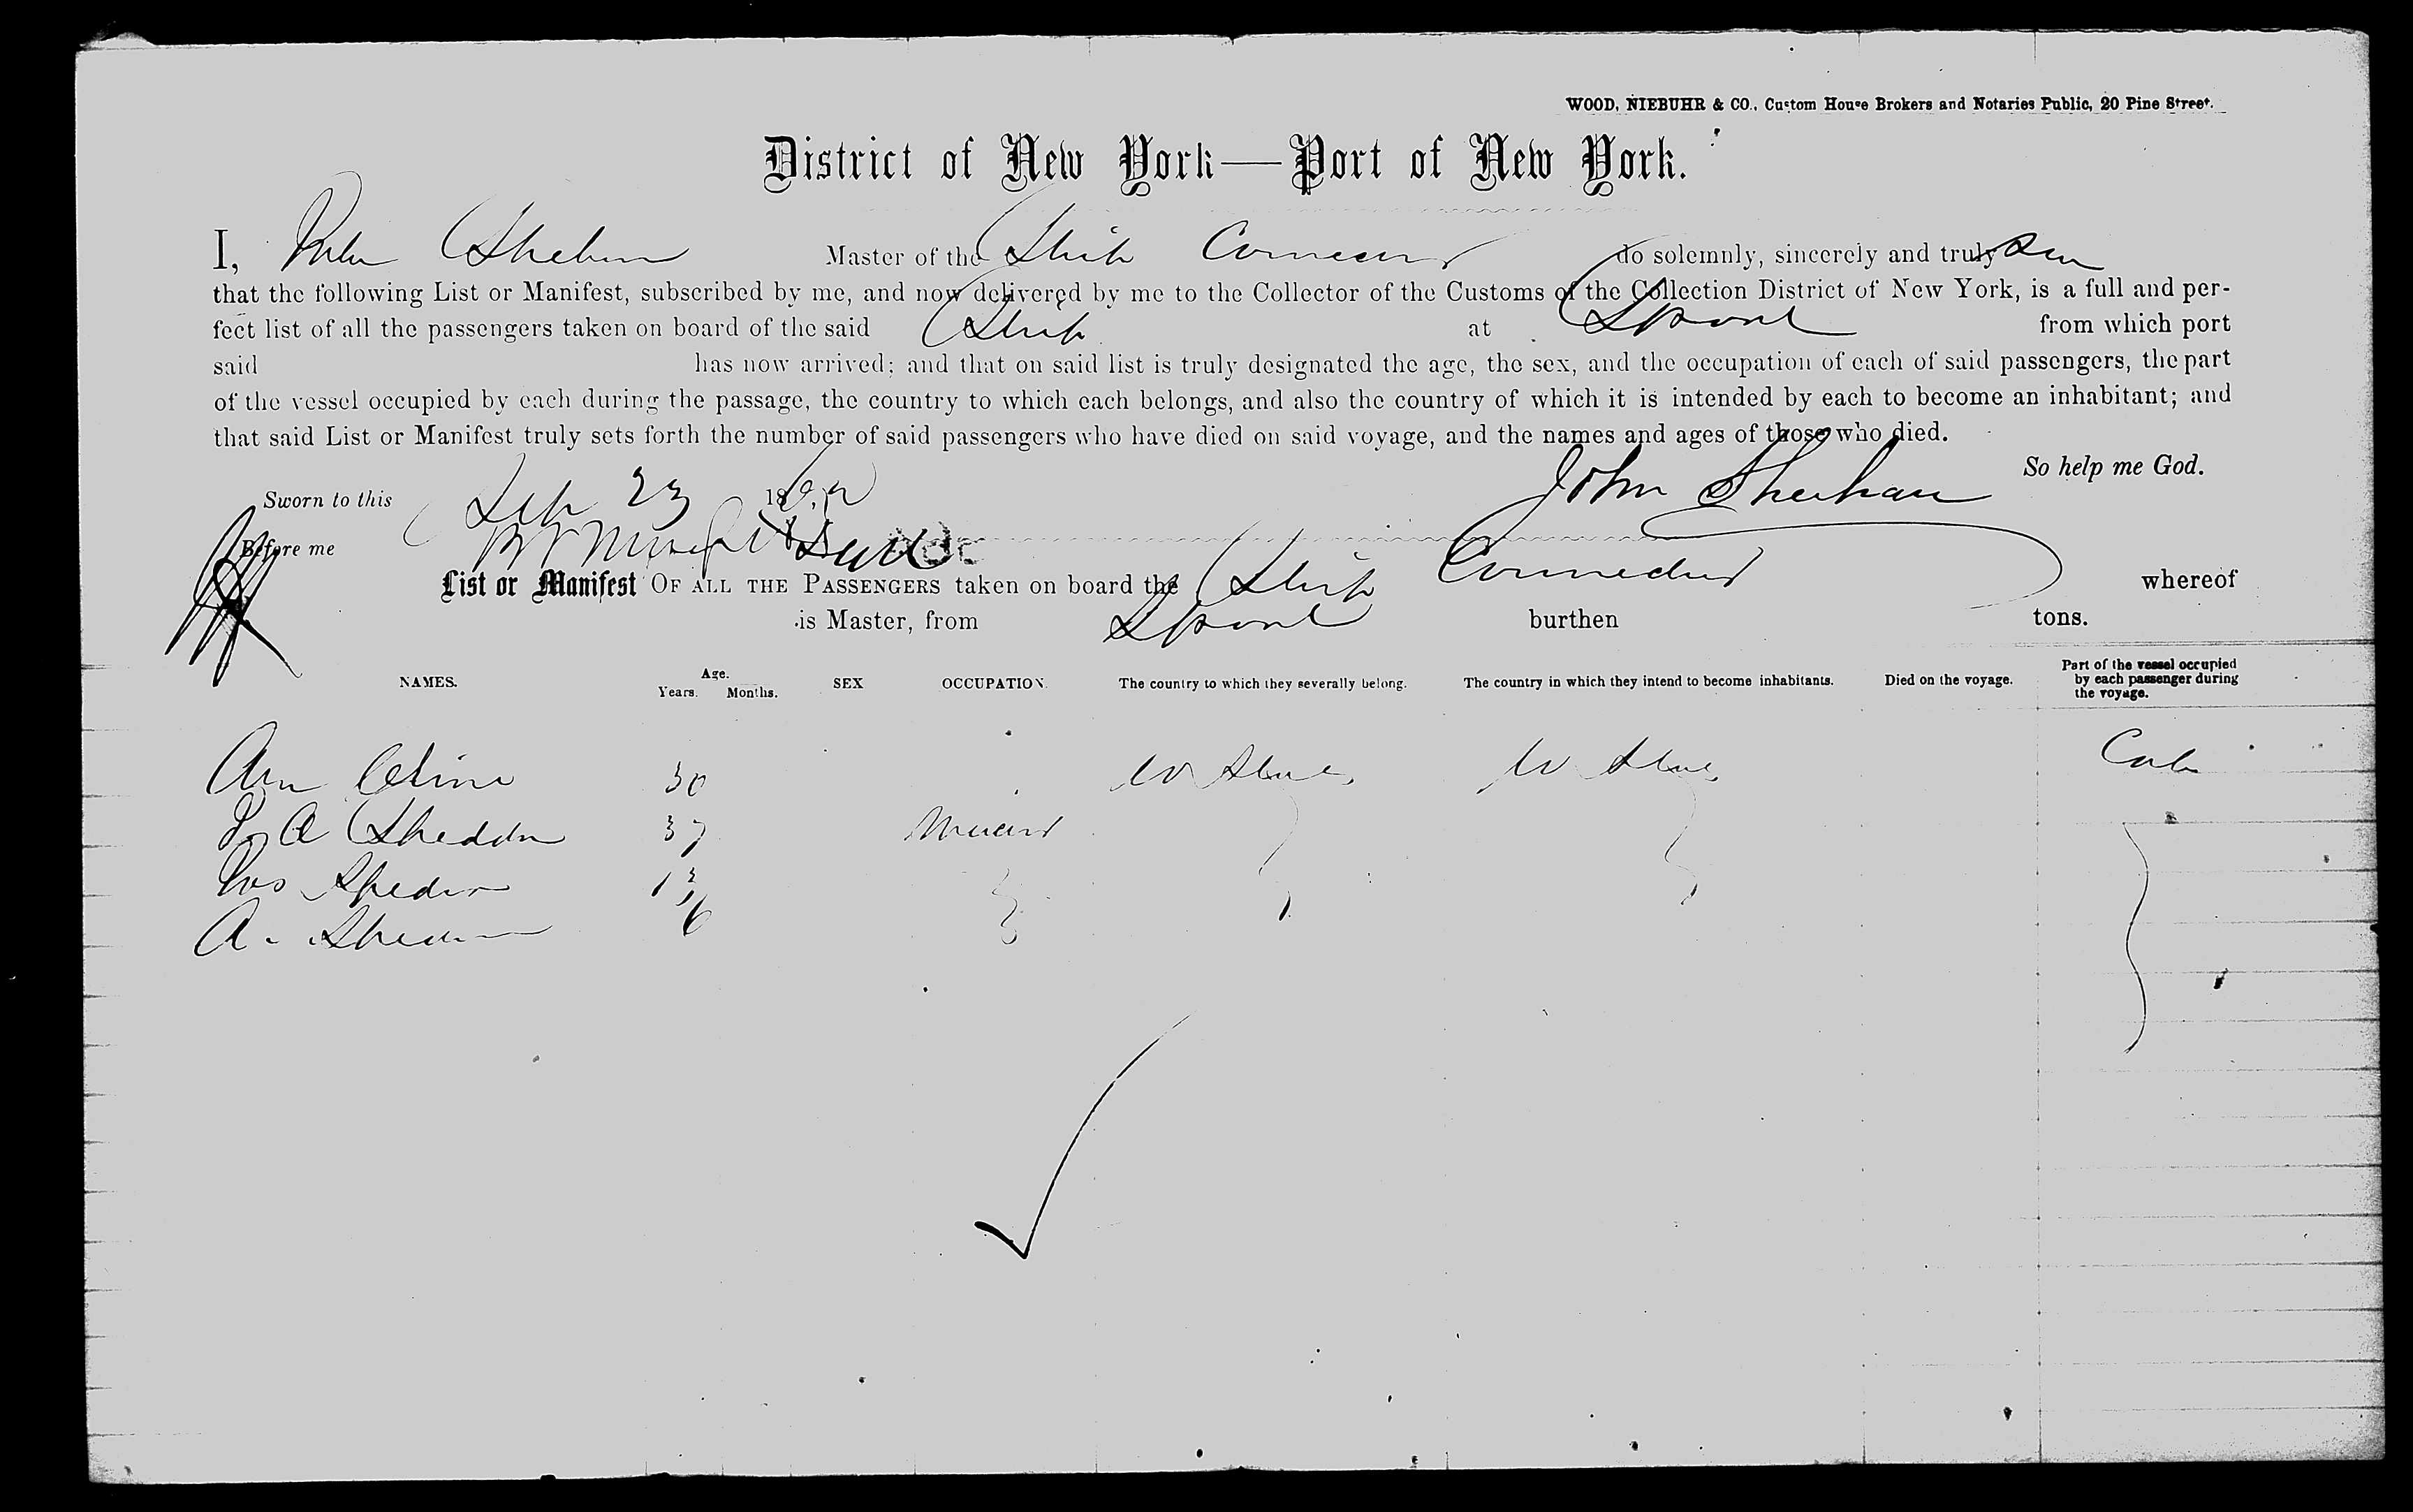 WOOD, NIEBUHR & CO., Custom House Brokers and Notaries Public, 20 Pine Street.
District of New York—Port of New York.
I, Master of the Ship do solemnly, sincerely and truly
that the following List or Manifest, subscribed by me, and now delivered by me to the Collector of the Customs of the Collection District of New York, is a full and per-
fect list of all the passengers taken on board of the said Ship at Lpool from which port
said has now arrived; and that on said list is truly designated the age, the sex, and the occupation of each of said passengers, the part
of the vessel occupied by each during the passage, the country to which each belongs, and also the country of which it is intended by each to become an inhabitant; and
that said List or Manifest truly sets forth the number of said passengers who have died on said voyage, and the names and ages of those who died.
So help me God.
Sworn to this Sep 23 18 John Sheehan
Before me
List or Manifest OF ALL THE PASSENGERS taken on board the Ship whereof
is Master, from Lpool burthen tons.
NAMES. Age. Years. Months. SEX OCCUPATION. The country to which they severally belong. The country in which they intend to become inhabitants. Died on the voyage. Part of the vessel occupied by each passenger during the voyage.
Ann 30 U States U States Cab
A Sheddon 37
13
A. 6